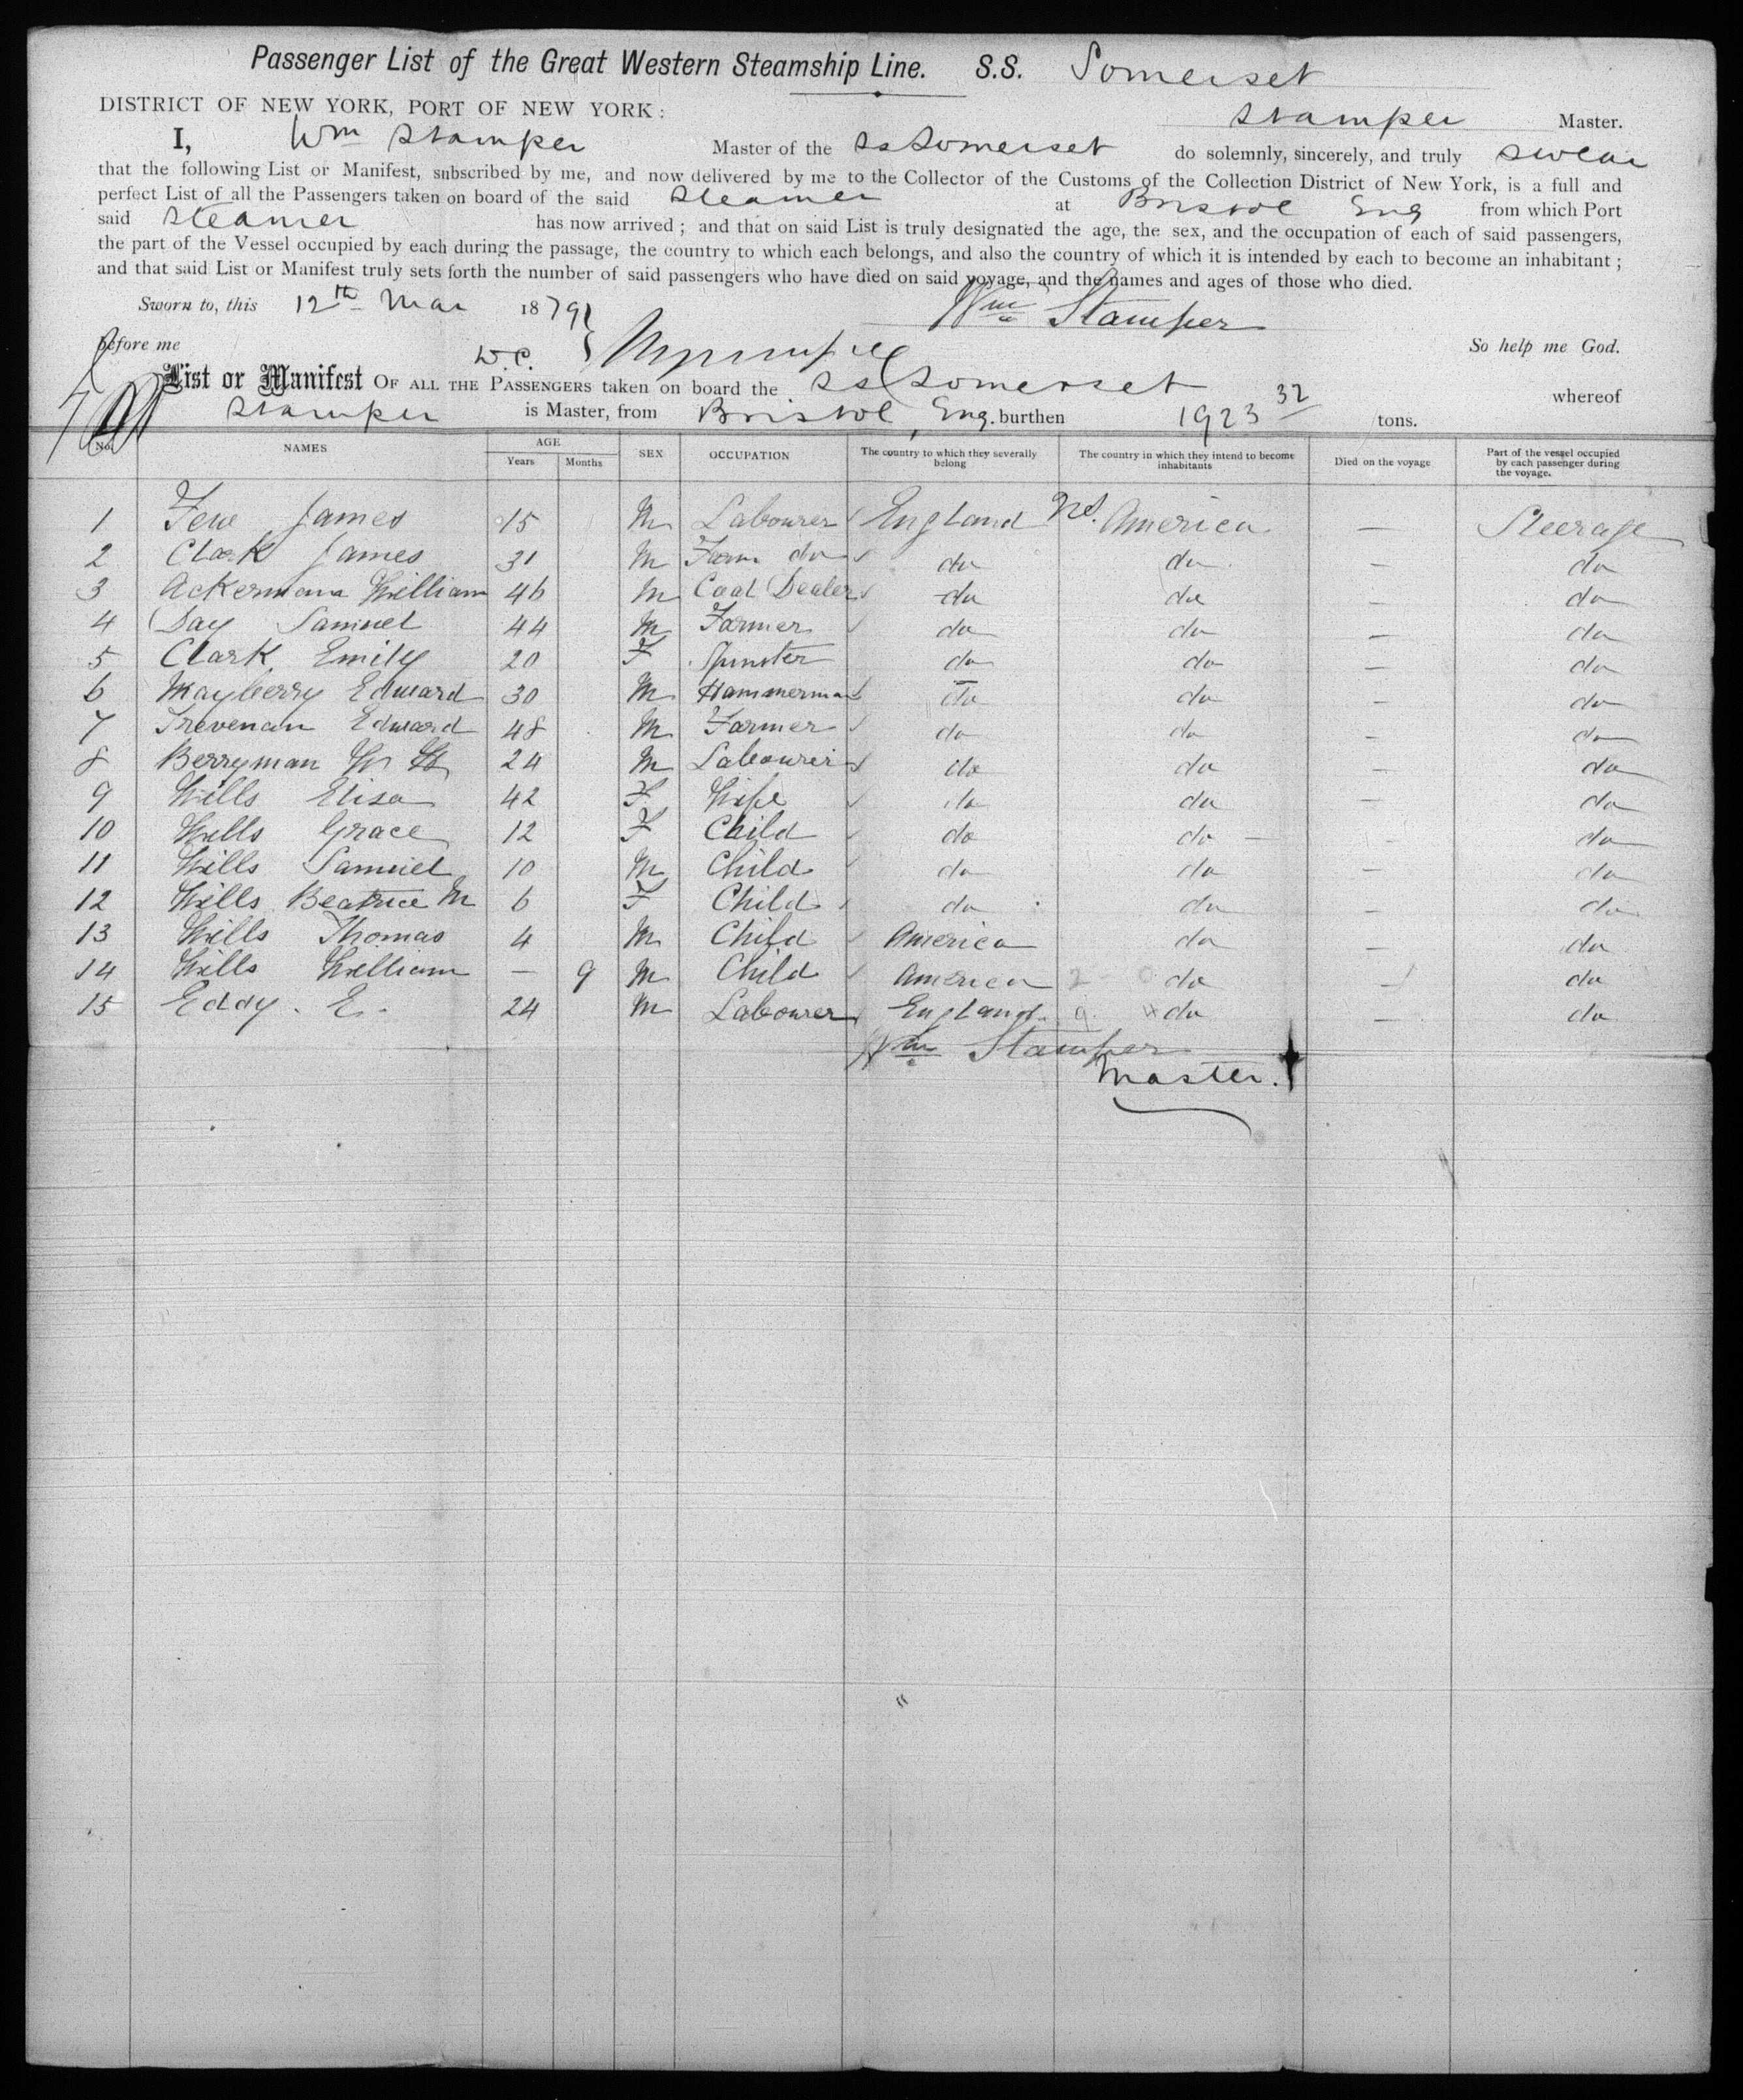 Passenger List of the Great Western Steamship Line. S.S. Somerset
DISTRICT OF NEW YORK, PORT OF NEW YORK: Stamper Master.
I, Wm Stamper Master of the SS Somerset do solemnly, sincerely, and truly swear
that the following List or Manifest, subscribed by me, and now delivered by me to the Collector of the Customs of the Collection District of New York, is a full and
perfect List of all the Passengers taken on board of the said Steamer at Bristol Eng from which Port
said Steamer has now arrived; and that on said List is truly designated the age, the sex, and the occupation of each of said passengers,
the part of the Vessel occupied by each during the passage, the country to which each belongs, and also the country of which it is intended by each to become an inhabitant;
and that said List or Manifest truly sets forth the number of said passengers who have died on said voyage, and the names and ages of those who died.
Sworn to, this 12th Mar 1879 Wm Stamper
before me So help me God.
W.C.
List or Manifest OF ALL THE PASSENGERS taken on board the SS Somerset whereof
Stamper is Master, from Bristol, Eng. burthen 1923 32 tons.
No. NAMES AGE Years Months SEX OCCUPATION The country to which they severally belong The country in which they intend to become inhabitants Died on the voyage Part of the vessel occupied by each passenger during the voyage.
1 Few James 15 M Labourer England America — Steerage
2 Clark James 31 M Farm do do do — do
3 Ackermann William 46 M Coal Dealer do do — do
4 Day Samuel 44 M Farmer do do — do
5 Clark Emily 20 F Spinster do do — do
6 Mayberry Edward 30 M Hammerman do do — do
7 Trevenan Edward 48 M Farmer do do — do
8 Berryman W H 24 M Labourer do do — do
9 Wills Elisa 42 F Wife do do — do
10 Wills Grace 12 F Child do do — do
11 Wills Samuel 10 M Child do do — do
12 Wills Beatrice M 6 F Child do do — do
13 Wills Thomas 4 M Child America do — do
14 Wills William — 9 M Child America do — do
15 Eddy. E. 24 M Labourer England do — do
Wm Stamper
Master.